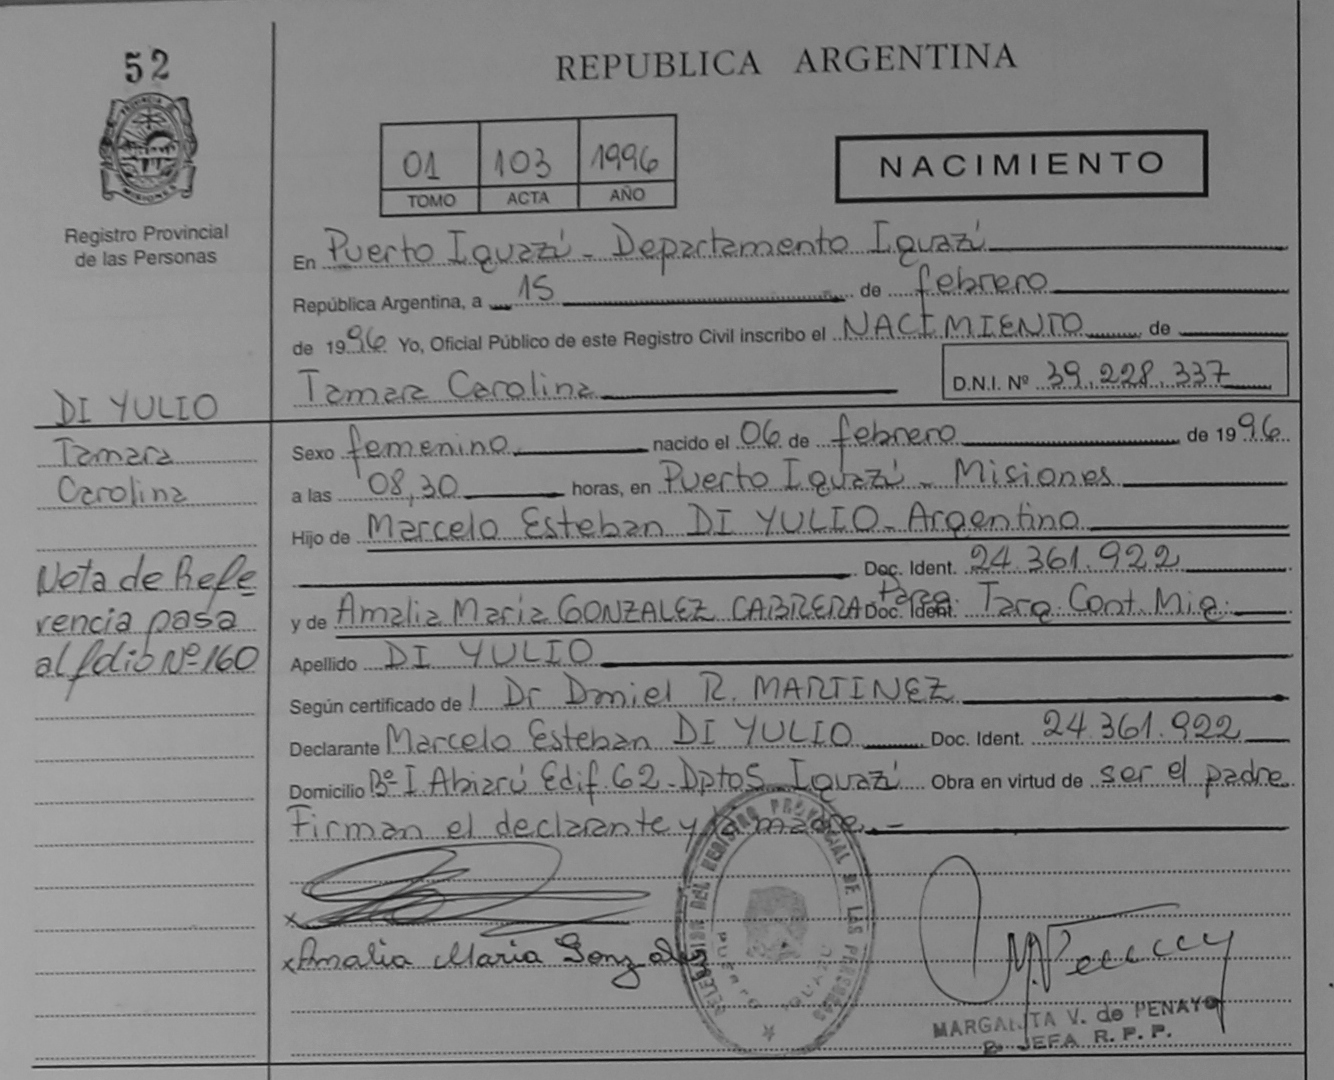 52
PROVINCIA DE
MISIONES
Registro Provincial
de las Personas
DI YULIO
Tamara
Carolina
Nota de Refe
rencia pasa
al folio Nº 160
REPUBLICA ARGENTINA
01 103 1996
TOMO ACTA AÑO
NACIMIENTO
En Puerto Iguazú - Departamento Iguazú
República Argentina, a 15 de febrero
de 1996 Yo, Oficial Público de este Registro Civil inscribo el NACIMIENTO de
Tamara Carolina D.N.I. Nº 39.228.337
Sexo femenino nacido el 06 de febrero de 1996
a las 08,30 horas, en Puerto Iguazú - Misiones
Hijo de Marcelo Esteban DI YULIO - Argentino
Doc. Ident. 24.361.922
y de Amalia Maria GONZALEZ CABRERA Parag. Doc. Ident. Targ. Cont. Mig.
Apellido DI YULIO
Según certificado de Dr Daniel R. MARTINEZ
Declarante Marcelo Esteban DI YULIO Doc. Ident. 24.361.922
Domicilio Bº I. Abiarú Edif. 62 - Dpto 5 Iguazú Obra en virtud de ser el padre
Firman el declarante y la madre. -
x
x Amalia Maria Gonzalez
DELEGACION DEL REGISTRO PROVINCIAL DE LAS PERSONAS
PUERTO IGUAZU
MARGARITA V. de PENAYO
JEFA R. P. P.